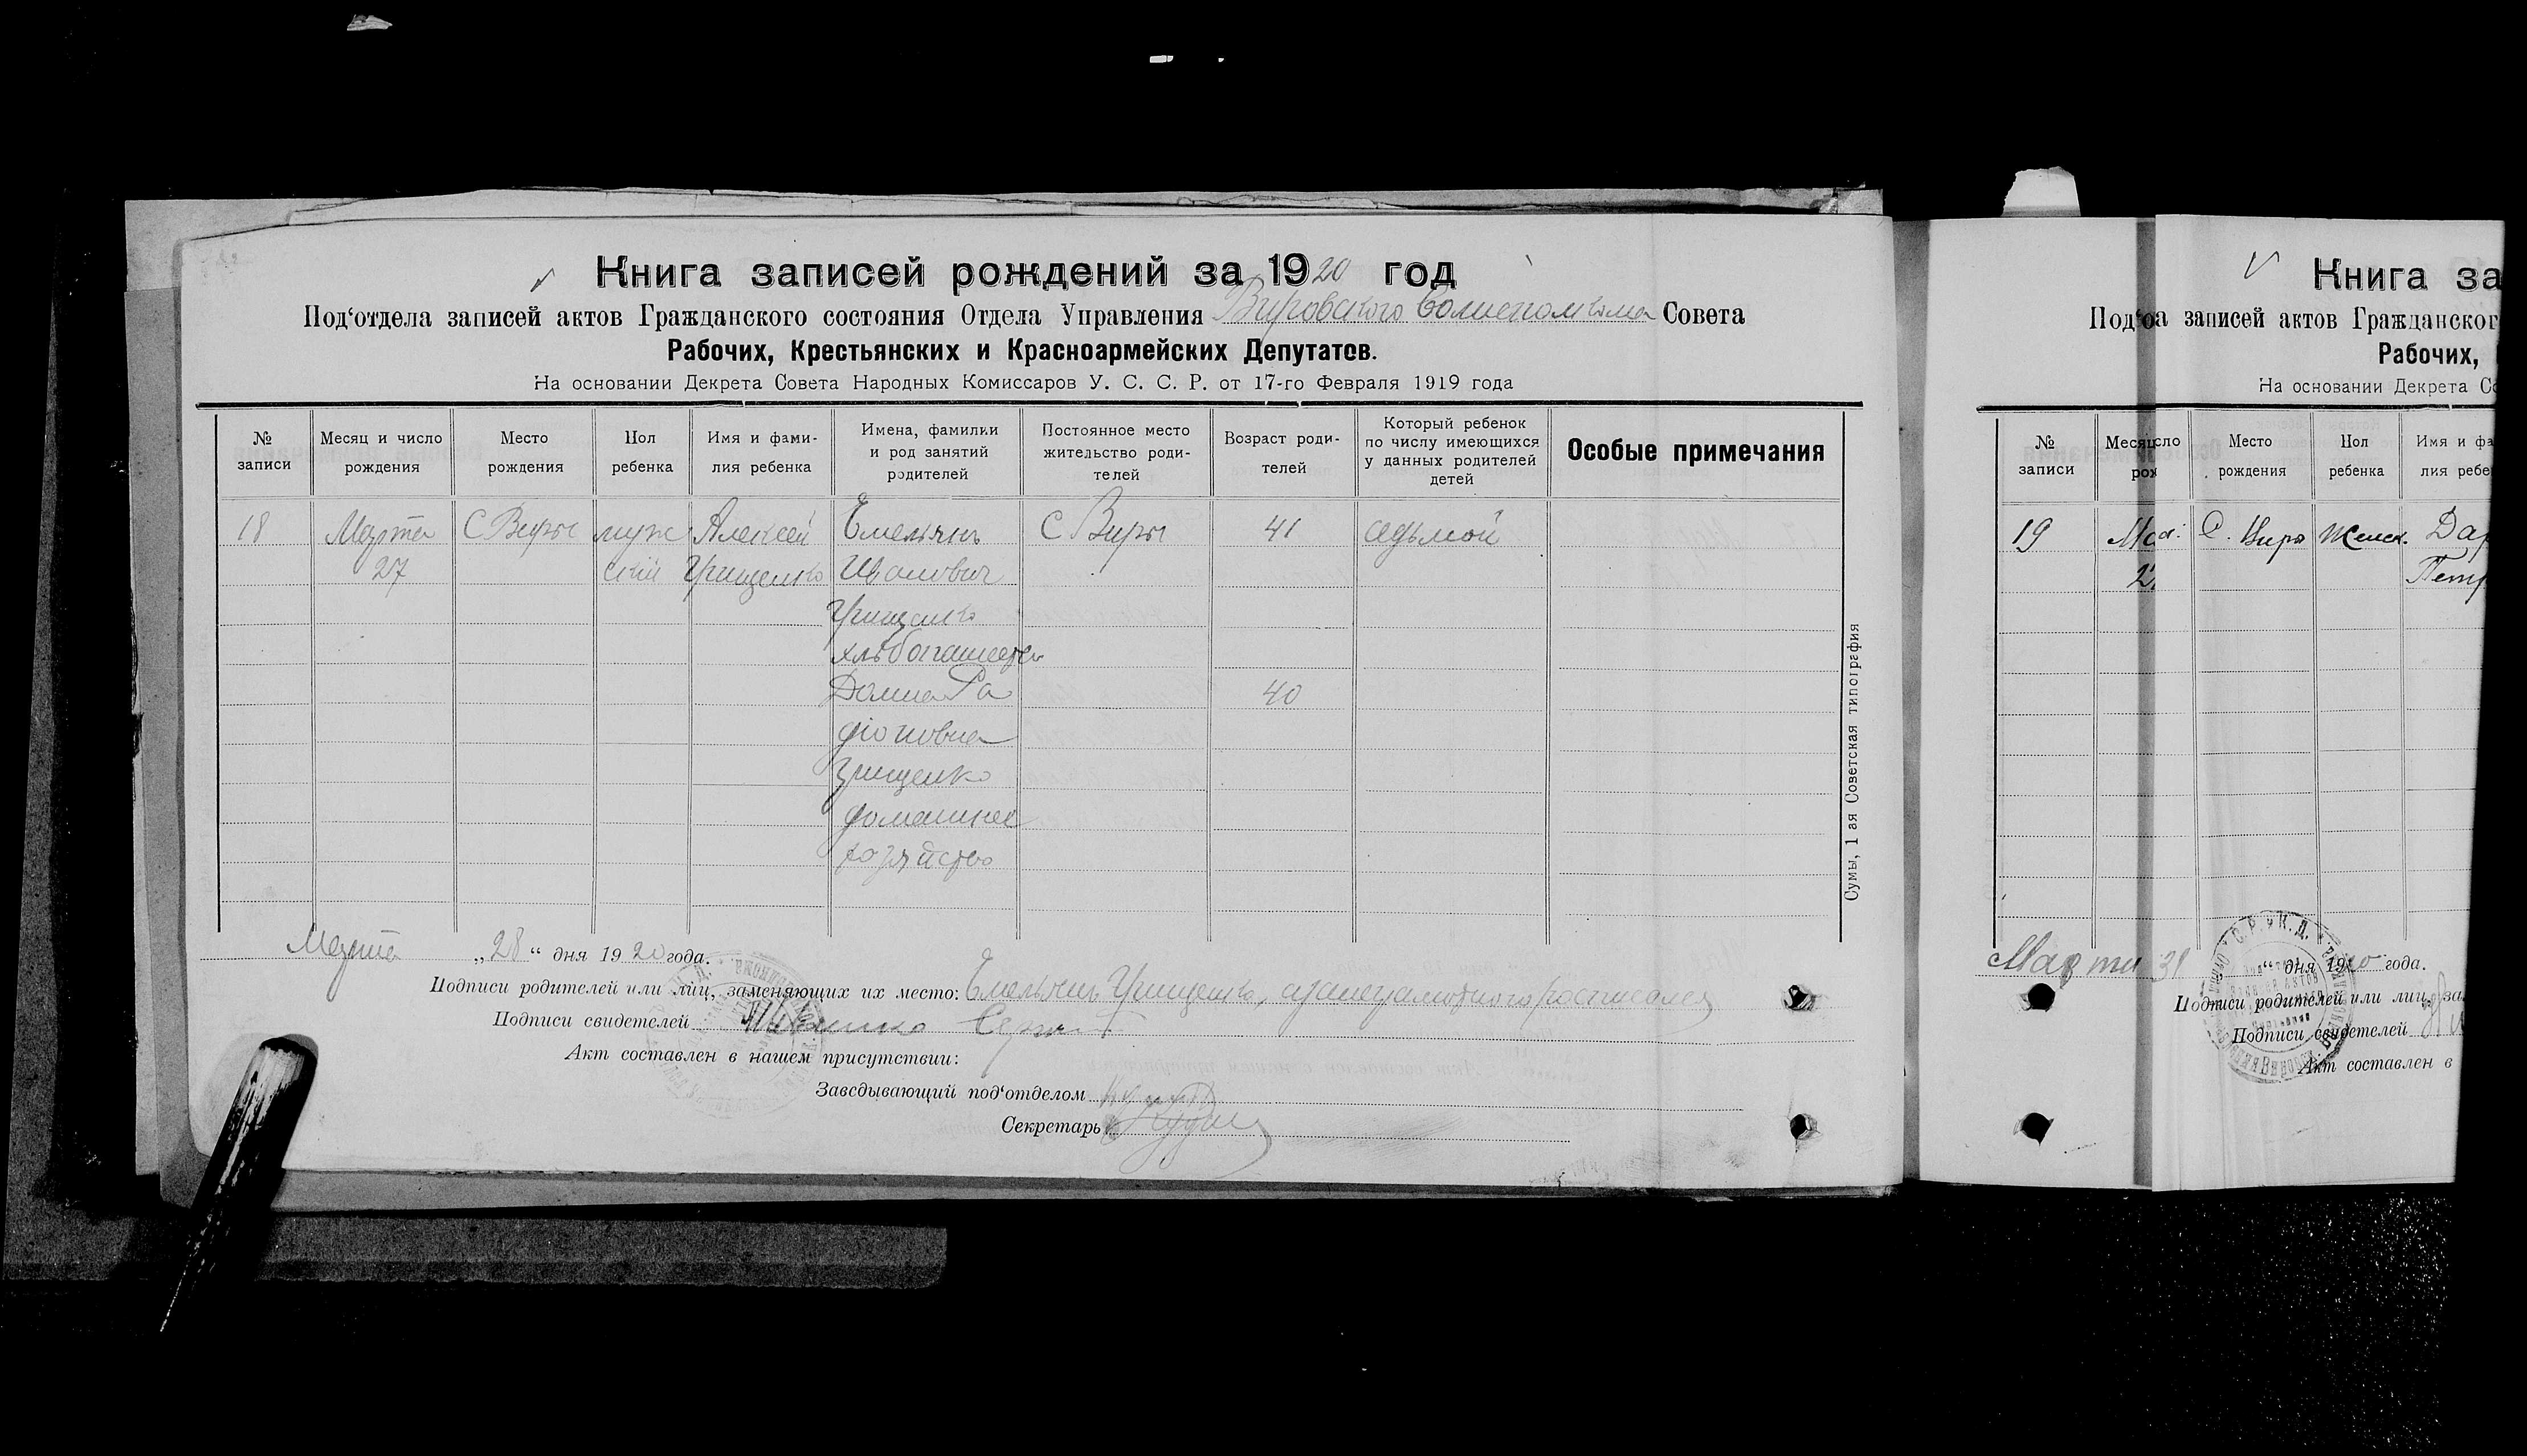 Книга записей рождений за 1920 год
Под‘отдела записей актов Гражданского состояния Отдела Управления Вировского Волисполкома Совета
Рабочих, Крестьянских и Красноармейских Депутатов.
На основании Декрета Совета Народных Комиссаров У. С. С. Р. от 17-го Февраля 1919 года
№ записи
Месяц и число рождения
Место рождения
Пол ребенка
Имя и фамилия ребенка
Имена, фамилии и род занятий родителей
Постоянное место жительство родителей
Возраст родителей
Который ребенок по числу имеющихся у данных родителей детей
Особые примечания
18 Марта С Виры муж Алексей Емельянъ С Виры 41 седьмой
27 ский Грищенко Иванович
Грищенко
хлѣбопашество
Домна Ра
діоновна
Грищенко
домашнее
хозяйство
40
Сумы, 1 ая Советская типография
Марта „28“ дня 1920 года.
Подписи родителей или лиц, заменяющих их место: Емельянъ Грищенко,
Подписи свидетелей
Акт составлен в нашем присутствии:
Заведывающий под‘отделом
Секретарь
Книга за
Под‘о а записей актов Гражданског
Рабочих,
На основании Декрета Со
№ записи
Место рождения
Пол ребенка
Имя и фа
лия ребе
19 С. Виры Женск. Дар
Петр
Марта 31 “ дня 1920 года.
Подписи родителей или лиц, за
Подписи свидетелей
Акт составлен в